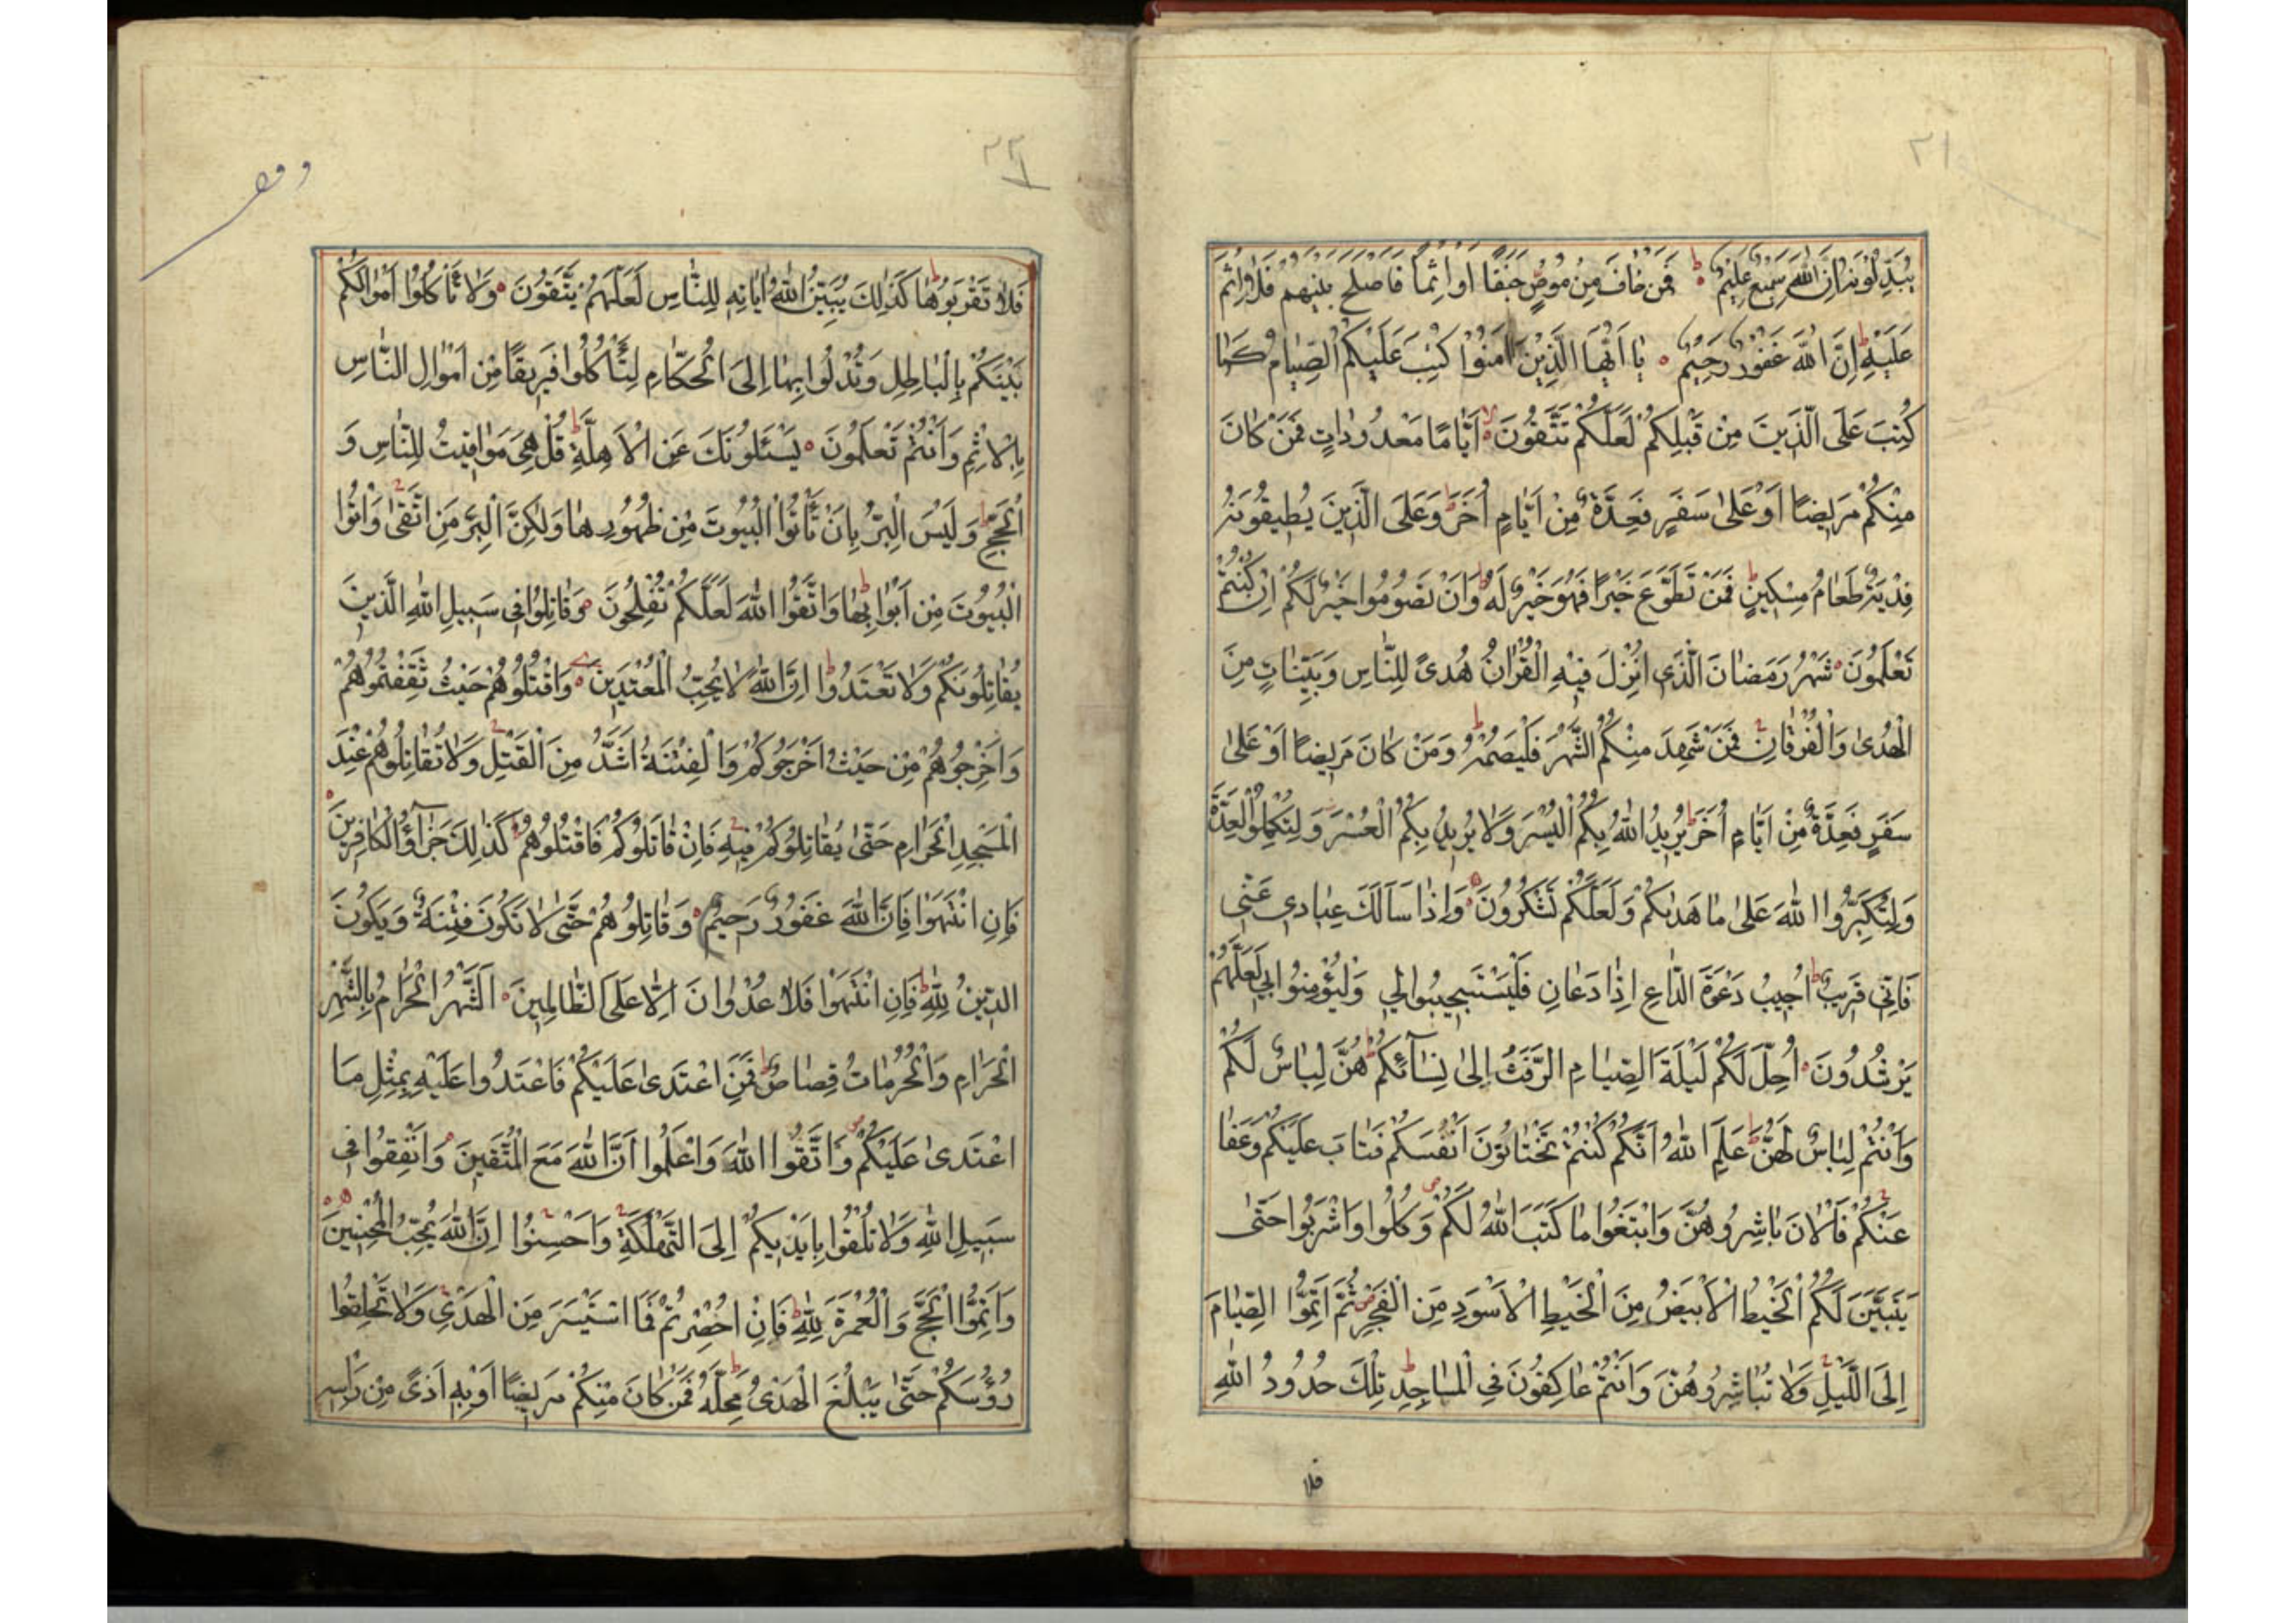 ٢١
يُبَدِّلُونَهُ اِنَّ اللهَ سَمِيعٌ عَلِيمٌ فَمَنْ خَافَ مِنْ مُوصٍ جَنَفًا اَوْ اِثْمًا فَاَصْلَحَ بَيْنَهُمْ فَلَا اِثْمَ
عَلَيْهِ اِنَّ اللهَ غَفُورٌ رَحِيمٌ يَا اَيُّهَا الَّذِينَ اٰمَنُوا كُتِبَ عَلَيْكُمُ الصِّيَامُ كَمَا
كُتِبَ عَلَى الَّذِينَ مِنْ قَبْلِكُمْ لَعَلَّكُمْ تَتَّقُونَ اَيَّامًا مَعْدُودَاتٍ فَمَنْ كَانَ
مِنْكُمْ مَرِيضًا اَوْ عَلٰى سَفَرٍ فَعِدَّةٌ مِنْ اَيَّامٍ اُخَرَ وَعَلَى الَّذِينَ يُطِيقُونَهُ
فِدْيَةٌ طَعَامُ مِسْكِينٍ فَمَنْ تَطَوَّعَ خَيْرًا فَهُوَ خَيْرٌ لَهُ وَاَنْ تَصُومُوا خَيْرٌ لَكُمْ اِنْ كُنْتُمْ
تَعْلَمُونَ شَهْرُ رَمَضَانَ الَّذِي اُنْزِلَ فِيهِ الْقُرْاٰنُ هُدًى لِلنَّاسِ وَبَيِّنَاتٍ مِنَ
الْهُدٰى وَالْفُرْقَانِ فَمَنْ شَهِدَ مِنْكُمُ الشَّهْرَ فَلْيَصُمْهُ وَمَنْ كَانَ مَرِيضًا اَوْ عَلٰى
سَفَرٍ فَعِدَّةٌ مِنْ اَيَّامٍ اُخَرَ يُرِيدُ اللهُ بِكُمُ الْيُسْرَ وَلَا يُرِيدُ بِكُمُ الْعُسْرَ وَلِتُكْمِلُوا الْعِدَّةَ
وَلِتُكَبِّرُوا اللهَ عَلٰى مَا هَدٰيكُمْ وَلَعَلَّكُمْ تَشْكُرُونَ وَاِذَا سَاَلَكَ عِبَادِي عَنِّي
فَاِنِّي قَرِيبٌ اُجِيبُ دَعْوَةَ الدَّاعِ اِذَا دَعَانِ فَلْيَسْتَجِيبُوا لِي وَلْيُؤْمِنُوا بِي لَعَلَّهُمْ
يَرْشُدُونَ اُحِلَّ لَكُمْ لَيْلَةَ الصِّيَامِ الرَّفَثُ اِلٰى نِسَآئِكُمْ هُنَّ لِبَاسٌ لَكُمْ
وَاَنْتُمْ لِبَاسٌ لَهُنَّ عَلِمَ اللهُ اَنَّكُمْ كُنْتُمْ تَخْتَانُونَ اَنْفُسَكُمْ فَتَابَ عَلَيْكُمْ وَعَفَا
عَنْكُمْ فَالْاٰنَ بَاشِرُوهُنَّ وَابْتَغُوا مَا كَتَبَ اللهُ لَكُمْ وَكُلُوا وَاشْرَبُوا حَتّٰى
يَتَبَيَّنَ لَكُمُ الْخَيْطُ الْاَبْيَضُ مِنَ الْخَيْطِ الْاَسْوَدِ مِنَ الْفَجْرِ ثُمَّ اَتِمُّوا الصِّيَامَ
اِلَى اللَّيْلِ وَلَا تُبَاشِرُوهُنَّ وَاَنْتُمْ عَاكِفُونَ فِي الْمَسَاجِدِ تِلْكَ حُدُودُ اللهِ
فلا
٢٢
وقف
فَلَا تَقْرَبُوهَا كَذٰلِكَ يُبَيِّنُ اللهُ اٰيَاتِهِ لِلنَّاسِ لَعَلَّهُمْ يَتَّقُونَ وَلَا تَاْكُلُوا اَمْوَالَكُمْ
بَيْنَكُمْ بِالْبَاطِلِ وَتُدْلُوا بِهَا اِلَى الْحُكَّامِ لِتَاْكُلُوا فَرِيقًا مِنْ اَمْوَالِ النَّاسِ
بِالْاِثْمِ وَاَنْتُمْ تَعْلَمُونَ يَسْئَلُونَكَ عَنِ الْاَهِلَّةِ قُلْ هِيَ مَوَاقِيتُ لِلنَّاسِ وَ
الْحَجِّ وَلَيْسَ الْبِرُّ بِاَنْ تَاْتُوا الْبُيُوتَ مِنْ ظُهُورِهَا وَلٰكِنَّ الْبِرَّ مَنِ اتَّقٰى وَاْتُوا
الْبُيُوتَ مِنْ اَبْوَابِهَا وَاتَّقُوا اللهَ لَعَلَّكُمْ تُفْلِحُونَ وَقَاتِلُوا فِي سَبِيلِ اللهِ الَّذِينَ
يُقَاتِلُونَكُمْ وَلَا تَعْتَدُوا اِنَّ اللهَ لَا يُحِبُّ الْمُعْتَدِينَ وَاقْتُلُوهُمْ حَيْثُ ثَقِفْتُمُوهُمْ
وَاَخْرِجُوهُمْ مِنْ حَيْثُ اَخْرَجُوكُمْ وَالْفِتْنَةُ اَشَدُّ مِنَ الْقَتْلِ وَلَا تُقَاتِلُوهُمْ عِنْدَ
الْمَسْجِدِ الْحَرَامِ حَتّٰى يُقَاتِلُوكُمْ فِيهِ فَاِنْ قَاتَلُوكُمْ فَاقْتُلُوهُمْ كَذٰلِكَ جَزَآؤُ الْكَافِرِينَ
فَاِنِ انْتَهَوْا فَاِنَّ اللهَ غَفُورٌ رَحِيمٌ وَقَاتِلُوهُمْ حَتّٰى لَا تَكُونَ فِتْنَةٌ وَيَكُونَ
الدِّينُ لِلّٰهِ فَاِنِ انْتَهَوْا فَلَا عُدْوَانَ اِلَّا عَلَى الظَّالِمِينَ اَلشَّهْرُ الْحَرَامُ بِالشَّهْرِ
الْحَرَامِ وَالْحُرُمَاتُ قِصَاصٌ فَمَنِ اعْتَدٰى عَلَيْكُمْ فَاعْتَدُوا عَلَيْهِ بِمِثْلِ مَا
اعْتَدٰى عَلَيْكُمْ وَاتَّقُوا اللهَ وَاعْلَمُوا اَنَّ اللهَ مَعَ الْمُتَّقِينَ وَاَنْفِقُوا فِي
سَبِيلِ اللهِ وَلَا تُلْقُوا بِاَيْدِيكُمْ اِلَى التَّهْلُكَةِ وَاَحْسِنُوا اِنَّ اللهَ يُحِبُّ الْمُحْسِنِينَ
وَاَتِمُّوا الْحَجَّ وَالْعُمْرَةَ لِلّٰهِ فَاِنْ اُحْصِرْتُمْ فَمَا اسْتَيْسَرَ مِنَ الْهَدْيِ وَلَا تَحْلِقُوا
رُؤُسَكُمْ حَتّٰى يَبْلُغَ الْهَدْيُ مَحِلَّهُ فَمَنْ كَانَ مِنْكُمْ مَرِيضًا اَوْ بِهِ اَذًى مِنْ رَاْسِهِ